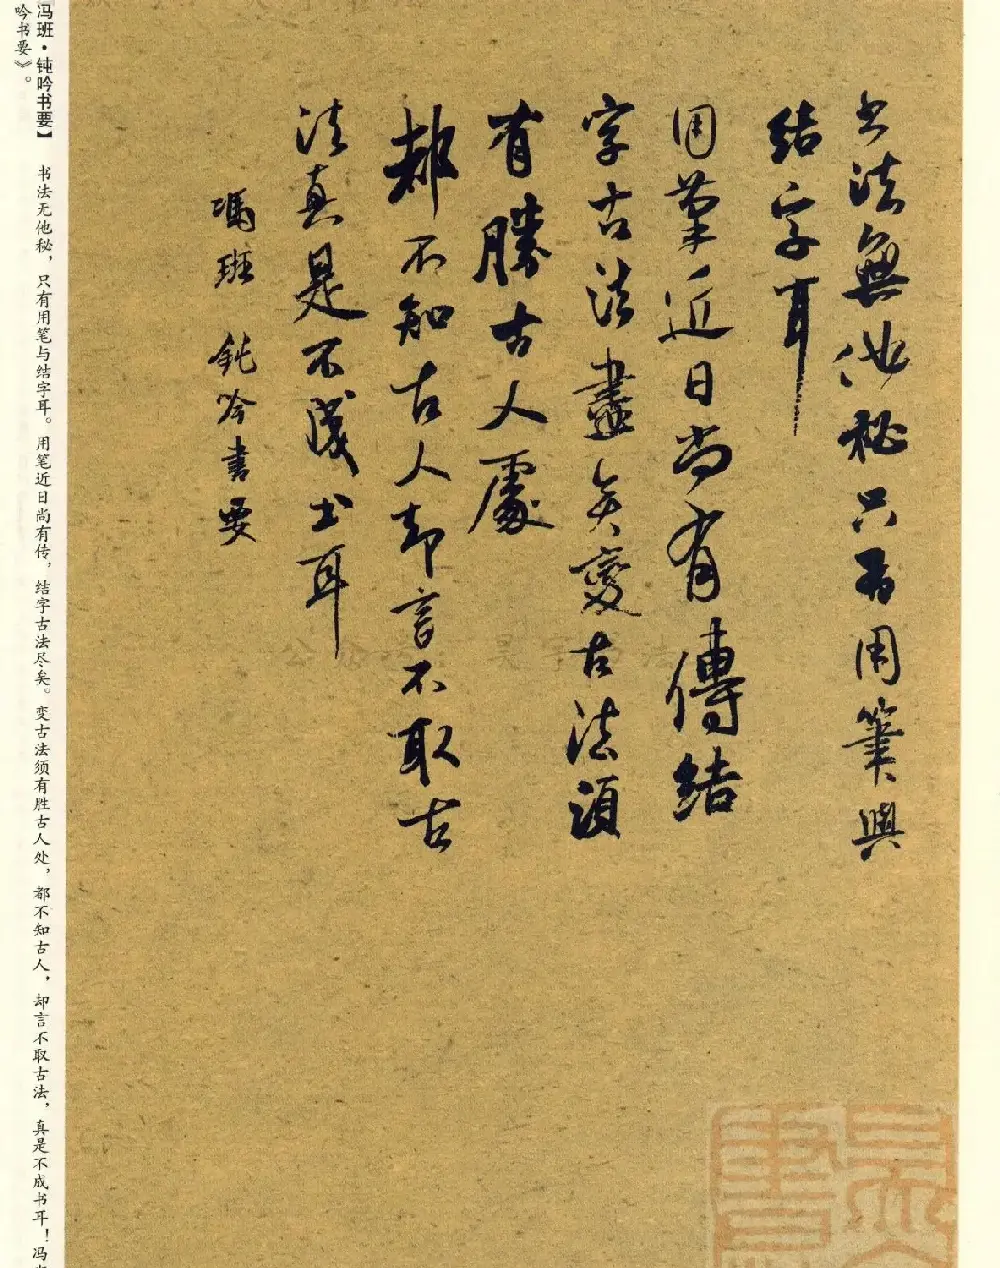 书法無他秘只有用筆與
結字耳
用筆近日尚有傳結
字古法盡矣變古法須
有勝古人處
都不知古人却言不取古
法真是不成书耳
馮班 鈍吟書要
冯班·钝吟书要】 书法无他秘，只有用笔与结字耳。用笔近日尚有传，结字古法尽矣。变古法须有胜古人处，都不知古人，却言不取古法，真是不成书耳！冯
吟书要》。